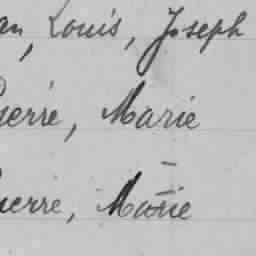 an, Louis, Joseph
ierre, Marie
ierre, Marie